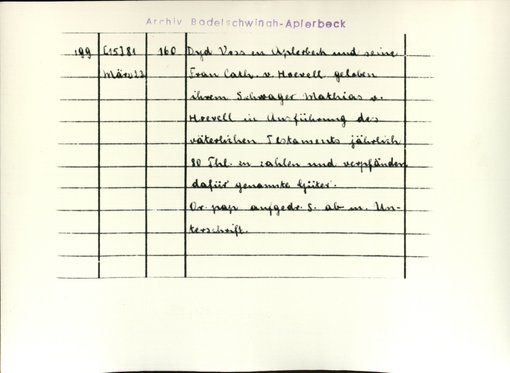 Archiv Bodelschwingh-Aplerbeck
199 [15]81 160 Dyd Voss en Aplerbeck und seine
März 22 Frau Cath. v. Hoevell geloben
ihrem Schwager Mathias v.
Hoevell in Ausführung des
väterlichen Testaments jährlich
80 Thl. zu zahlen und verpfänden
dafür genannte Güter.
Or. pap. aufgedr. S. ab m. Un-
terschrift.